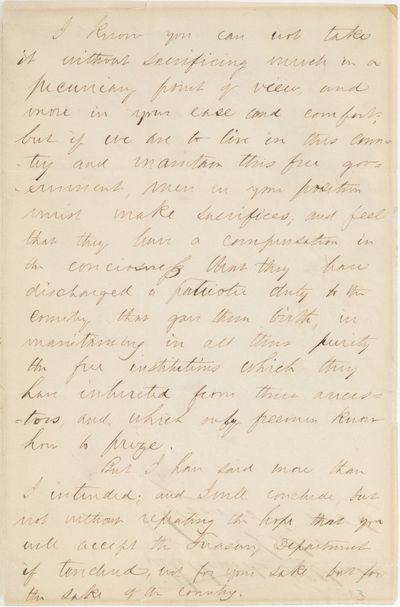 I know you can not take
it without sacrificing much in a
pecuniary point of view, and
more in your ease and comfort,
but if we are to live in this coun-
-try and maintain this free gov-
-ernment, men in your position
must make sacrifices, and feel
that they have a compensation in
the conciousness that they have
discharged a patriotic duty to the
country that gave them birth, in
maintaining in all their purity
the free institutions which they
have inherited from their ances-
-tors, and which only freemen know
how to prize.
But I have said more than
I intended; and I will conclude, but
not without repeating the hope that you
will accept the Treasury Department
if tendered, not for your sake but for
the sake of the country.
13